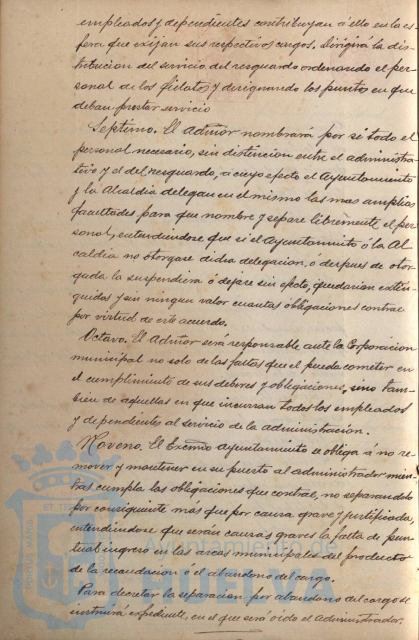 empleados y dependientes contribuyan á ello en la es-
fera que exijan sus respectivos cargos. Dirigirá la dis-
tribucion del servicio del resguardo ordenando el per-
sonal de los fielatos y designando los puntos en que
deban prestar servicio
Septimo. El Admor nombrará por sí todo el
personal necesario, sin distincion entre el administra-
tivo y el del resguardo, á cuyo efecto el Ayuntamiento
y la Alcaldia delegan en el mismo las mas amplias
facultades, para que nombre y separe libremente el per-
sonal, entendiendose que si el Ayuntamiento ó la Al-
caldia no otorgase dicha delegacion, ó despues de otor-
gada la suspendiera ó dejare sin efecto, quedarian extin-
guidas y sin ningun valor cuantas obligaciones contrae
por virtud de este acuerdo.
Octavo. El Admor será responsable ante la Corporacion
municipal no solo de las faltas que el pueda cometer en
el cumplimiento de sus deberes y obligaciones, sino tam-
bien de aquellas en que incurran todos los empleados
y dependientes al servicio de la administracion.
Noveno. El Excmo Ayuntamiento se obliga á no re-
mover y mantener en su puesto al administrador mien-
tras cumpla las obligaciones que contrae, no separandolo
por consiguiente mas que por causa grave y justificada,
entendiendose que serán causas graves la falta de pun-
tual ingreso en las arcas municipales del producto
de la recaudacion ó el abandono del cargo.
Para decretar la separacion por abandono del cargo se
instruirá expediente, en el que será oido el Administrador.